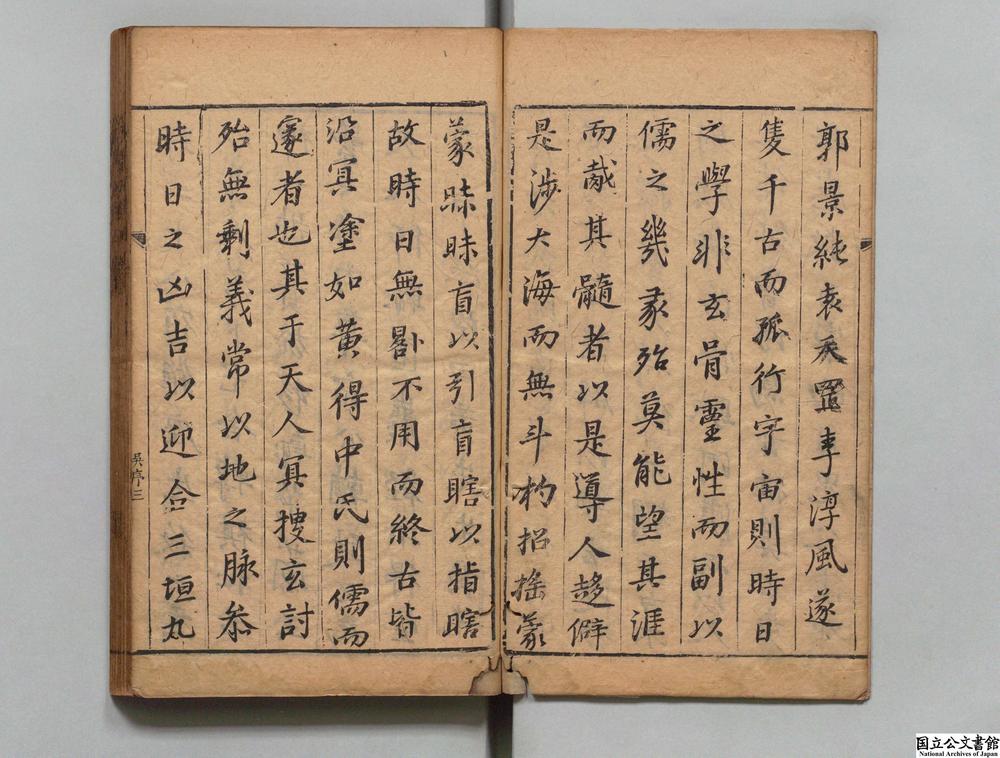 郭景純袁天罡李淳風遂
隻千古而孤行宇宙則時日
之學非玄骨靈性而副以
儒之幾彖殆莫能望其涯
而胾其髓者以是導人趍僻
是涉大海而無斗杓招搖蒙
蒙眛眛盲以引盲瞎以指瞎
故時日無影不用而終古皆
沿冥塗如黃得中氏則儒而
邃者也其于天人冥搜玄討
殆無剩義常以地之脉叅
時日之凶吉以迎合三垣九
吳序三
国立公文書館
National Archives of Japan